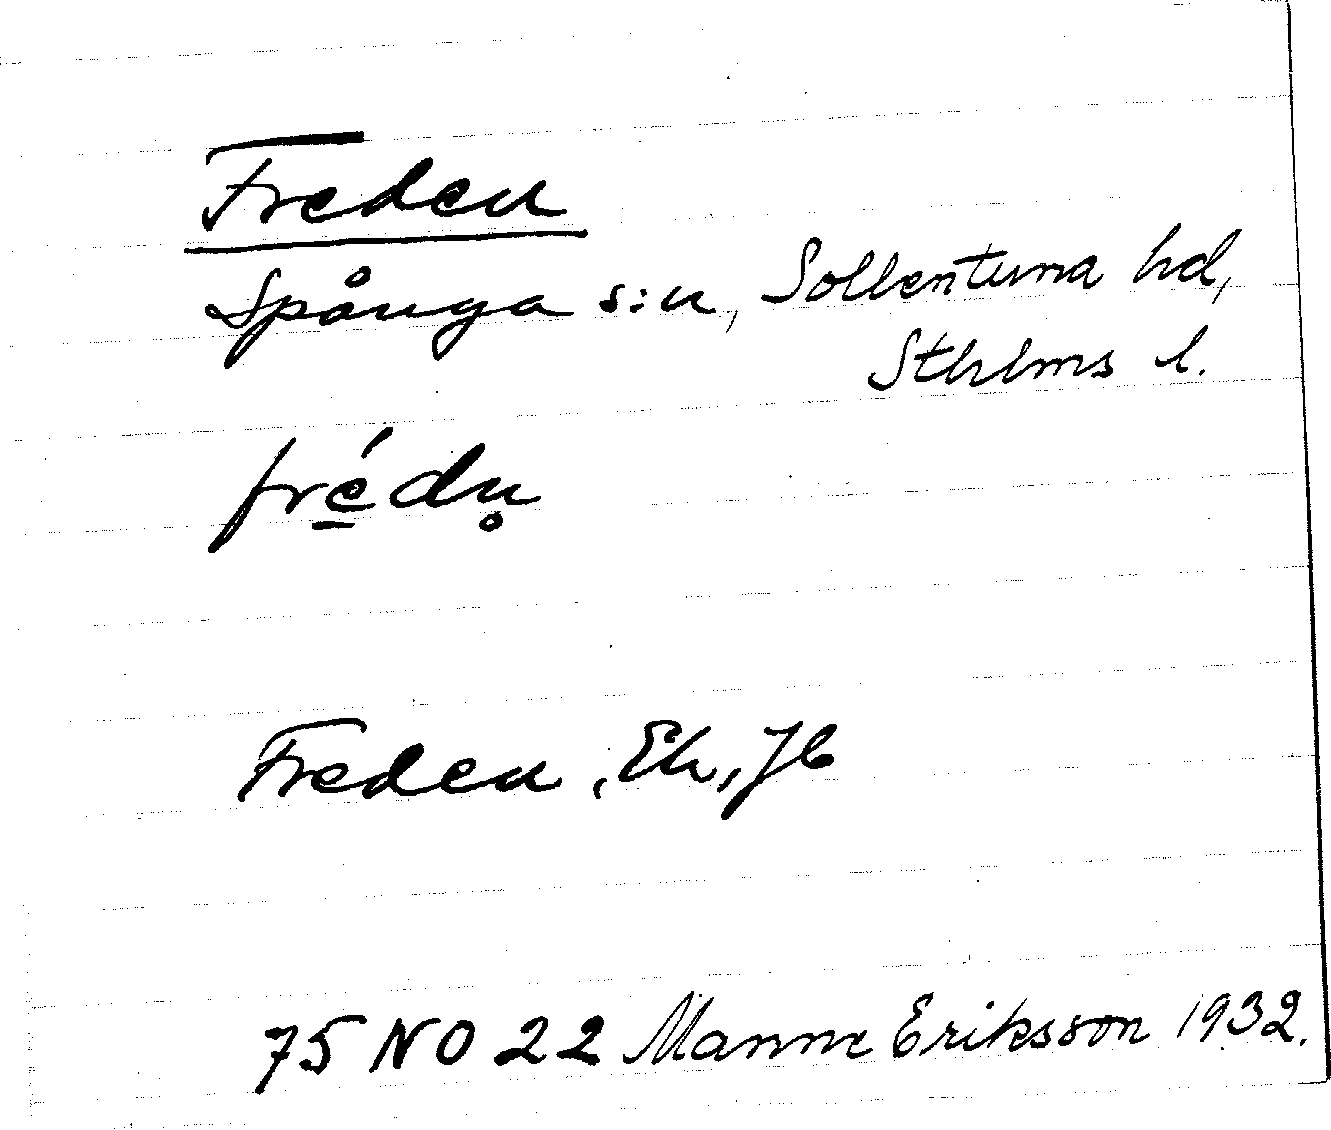 Freden
Spånga s:n, Sollentuna hd,
Sthlms l.
frḗdn̥
Freden, Ek, Jb
75 NO 22 Manne Eriksson 1932.